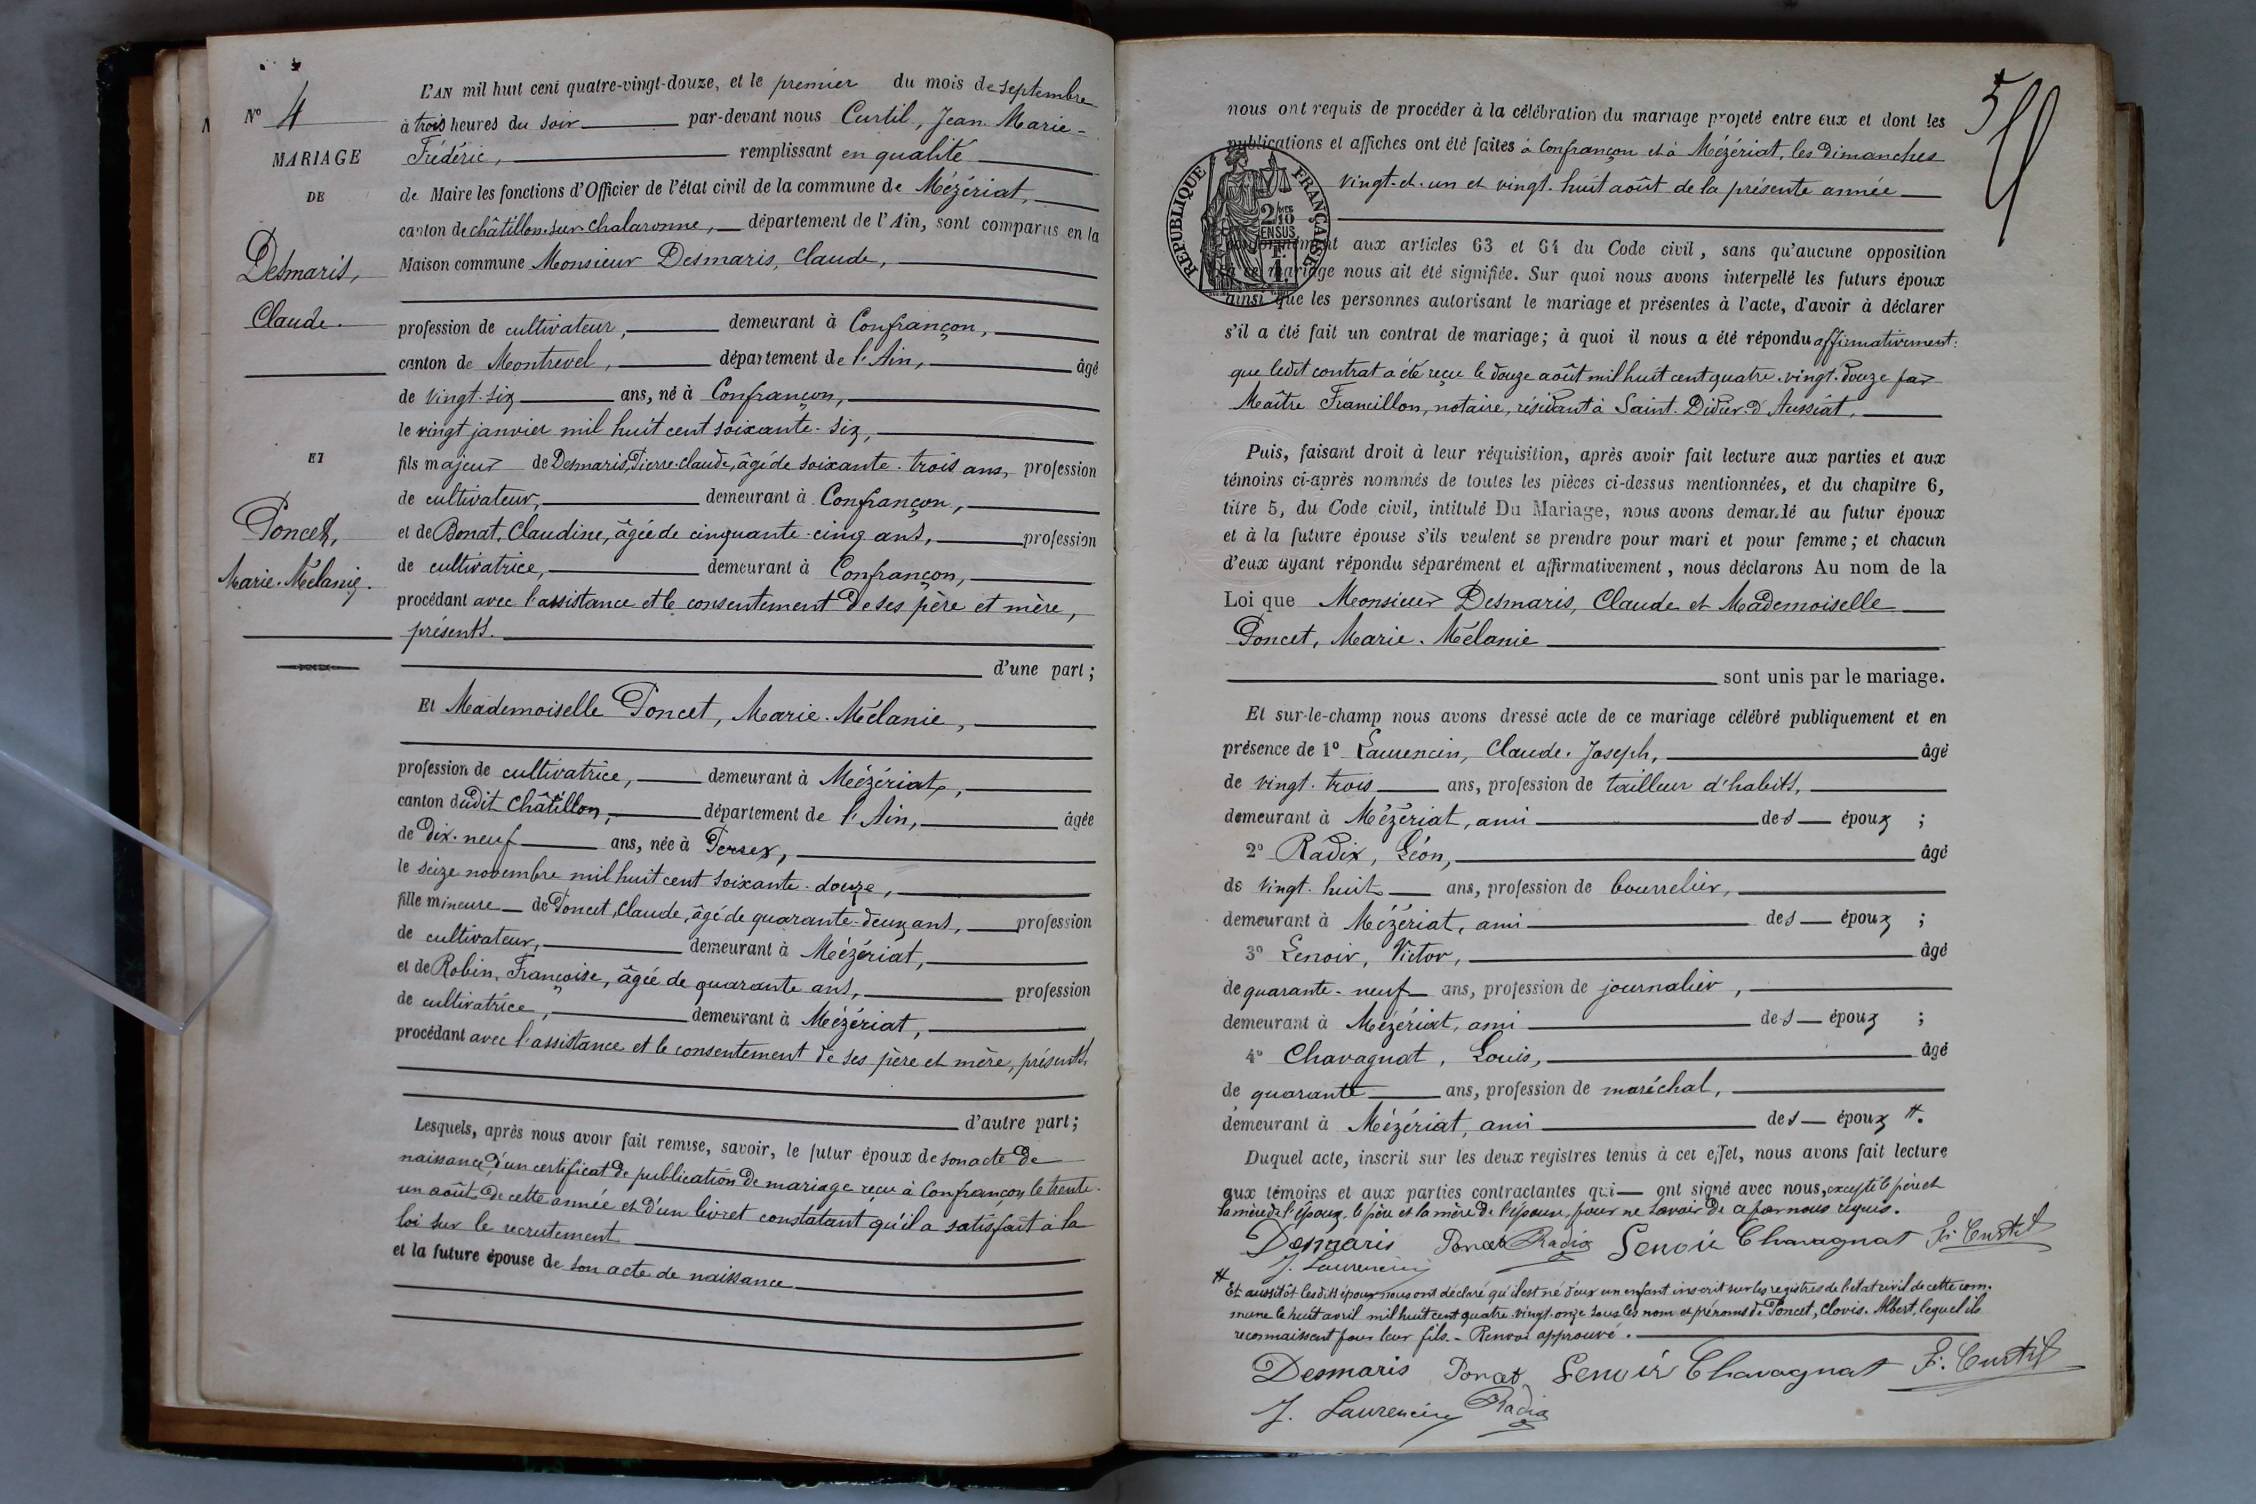 N° 4
MARIAGE
DE
Desmaris,
Claude.
ET
Poncet,
Marie-Mélanie.
L'AN mil huit cent quatre-vingt-douze, et le premier du mois de septembre
à trois heures du soir par-devant nous Curtil, Jean Marie-
Frédéric, remplissant en qualité
de Maire les fonctions d'Officier de l'état civil de la commune de Mézériat,
canton de châtillon-sur-chalaronne, département de l'Ain, sont comparus en la
Maison commune Monsieur Desmaris, Claude,
profession de cultivateur, demeurant à Confrançon,
canton de Montrevel, département de l'Ain, âgé
de vingt-six ans, né à Confrançon,
le vingt janvier mil huit cent soixante-six,
fils majeur de Desmaris, Pierre-Claude, âgé de soixante-trois ans, profession
de cultivateur, demeurant à Confrançon,
et de Bonat, Claudine, âgée de cinquante-cinq ans, profession
de cultivatrice, demeurant à Confrançon,
procédant avec l'assistance et le consentement de ses père et mère,
présents.
d'une part;
Et Mademoiselle Poncet, Marie-Mélanie,
profession de cultivatrice, demeurant à Mézériat,
canton dudit Châtillon, département de l'Ain, âgée
de dix-neuf ans, née à Perrex,
le seize novembre mil huit cent soixante-douze,
fille mineure de Poncet, Claude, âgé de quarante-deux ans, profession
de cultivateur, demeurant à Mézériat,
et de Robin, Françoise, âgée de quarante ans, profession
de cultivatrice, demeurant à Mézériat,
procédant avec l'assistance et le consentement de ses père et mère, présents.
d'autre part;
Lesquels, après nous avoir fait remise, savoir, le futur époux de son acte de
naissance, d'un certificat de publication de mariage reçu à Confrançon le trente-
un août de cette année et d'un livret constatant qu'il a satisfait à la
loi sur le recrutement
et la future épouse de son acte de naissance
5
nous ont requis de procéder à la célébration du mariage projeté entre eux et dont les
publications et affiches ont été faites à Confrançon et à Mézériat, les dimanches
vingt-et-un et vingt-huit août de la présente année
RÉPUBLIQUE FRANÇAISE
2/10 EN SUS
1 F.
conformément aux articles 63 et 64 du Code civil, sans qu'aucune opposition
à ce mariage nous ait été signifiée. Sur quoi nous avons interpellé les futurs époux
ainsi que les personnes autorisant le mariage et présentes à l'acte, d'avoir à déclarer
s'il a été fait un contrat de mariage; à quoi il nous a été répondu affirmativement:
que ledit contrat a été reçu le douze août mil huit cent quatre-vingt-douze par
Maître Francillon, notaire, résidant à Saint-Didier-d'Aussiat.
Puis, faisant droit à leur réquisition, après avoir fait lecture aux parties et aux
témoins ci-après nommés de toutes les pièces ci-dessus mentionnées, et du chapitre 6,
titre 5, du Code civil, intitulé Du Mariage, nous avons demandé au futur époux
et à la future épouse s'ils veulent se prendre pour mari et pour femme; et chacun
d'eux ayant répondu séparément et affirmativement, nous déclarons Au nom de la
Loi que Monsieur Desmaris, Claude et Mademoiselle
Poncet, Marie-Mélanie
sont unis par le mariage.
Et sur-le-champ nous avons dressé acte de ce mariage célébré publiquement et en
présence de 1° Laurencin, Claude-Joseph, âgé
de vingt-trois ans, profession de tailleur d'habits,
demeurant à Mézériat, ami des époux ;
2° Radix, Léon, âgé
de vingt-huit ans, profession de bourrelier,
demeurant à Mézériat, ami des époux ;
3° Lenoir, Victor, âgé
de quarante-neuf ans, profession de journalier,
demeurant à Mézériat, ami des époux ;
4° Chavagnat, Louis, âgé
de quarante ans, profession de maréchal,
demeurant à Mézériat, ami des époux #.
Duquel acte, inscrit sur les deux registres tenus à cet effet, nous avons fait lecture
aux témoins et aux parties contractantes qui ont signé avec nous, excepté le père et
la mère de l'époux, le père et la mère de l'épouse, pour ne savoir de ce par nous requis.
Desmaris Poncet Radix Lenoir Chavagnat F. Curtil
J. Laurencin
# Et aussitôt lesdits époux nous ont déclaré qu'il est né d'eux un enfant inscrit sur les registres de l'état civil de cette com-
mune le huit avril mil huit cent quatre-vingt-onze sous les nom et prénoms de Poncet, Clovis-Albert, lequel ils
reconnaissent pour leur fils.- Renvoi approuvé.
Desmaris Poncet Lenoir Chavagnat F. Curtil
J. Laurencin Radix